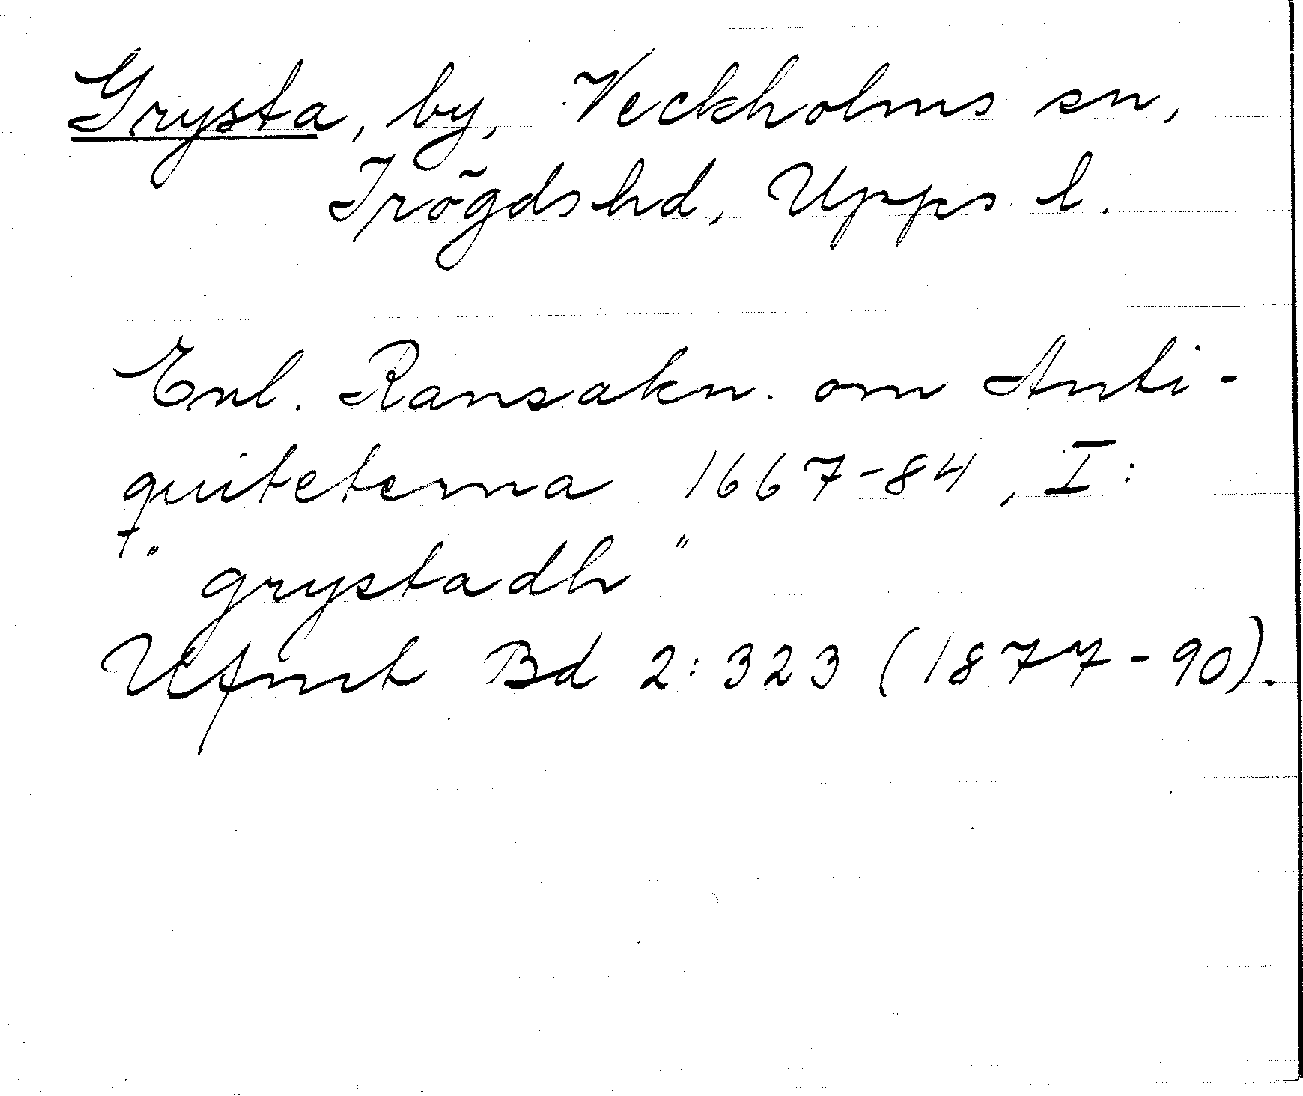 Grysta, by, Veckholms sn,
Trögds hd, Upps l.
Enl. Ransakn. om Anti-
quiteterna 1667-84, I:
" grystadh "
Ufmt Bd 2:323 (1877-90).